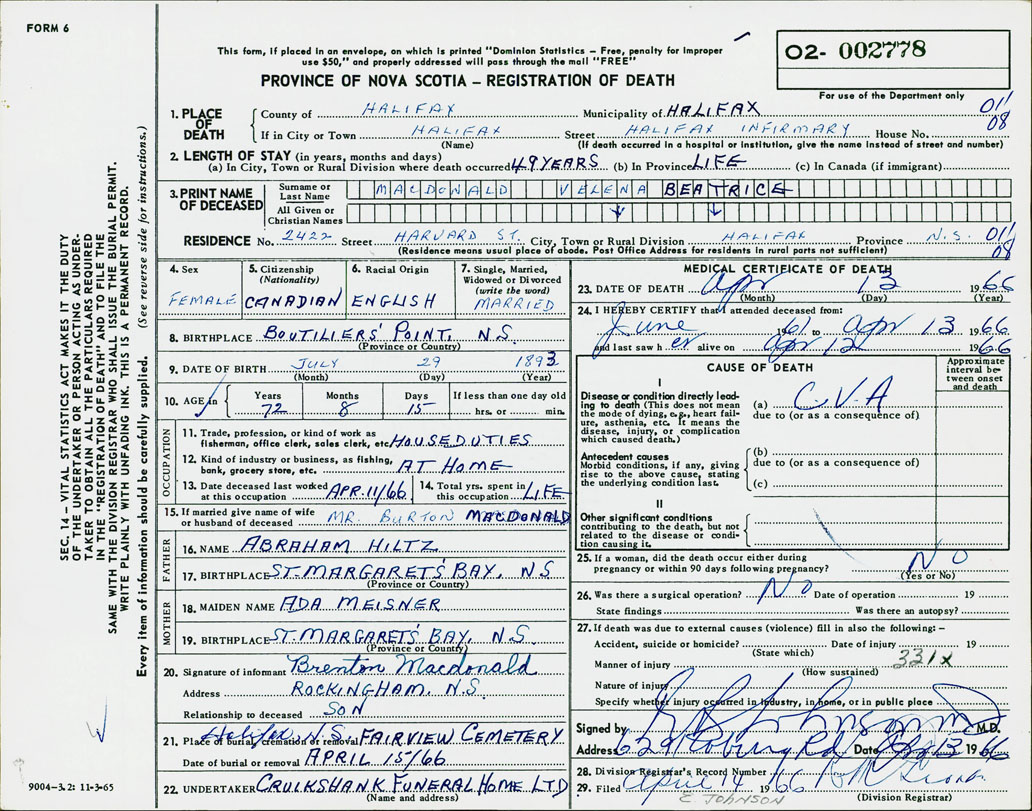 FORM 6
This form, if placed in an envelope, on which is printed "Dominion Statistics – Free, penalty for improper
use $50," and properly addressed will pass through the mail "FREE"
PROVINCE OF NOVA SCOTIA – REGISTRATION OF DEATH
02- 002778
For use of the Department only
1. PLACE OF DEATH
County of HALIFAX Municipality of HALIFAX 011
If in City or Town HALIFAX Street HALIFAX INFIRMARY House No. 08
(Name) (If death occurred in a hospital or institution, give the name instead of street and number)
2. LENGTH OF STAY (in years, months and days)
(a) In City, Town or Rural Division where death occurred 49 YEARS (b) In Province LIFE (c) In Canada (if immigrant)
3. PRINT NAME OF DECEASED
Surname or Last Name MACDONALD VELENA BEATRICE
All Given or Christian Names
RESIDENCE No. 2422 Street HARVARD ST. City, Town or Rural Division HALIFAX Province N.S. 011
(Residence means usual place of abode. Post Office Address for residents in rural parts not sufficient) 08
4. Sex FEMALE
5. Citizenship (Nationality) CANADIAN
6. Racial Origin ENGLISH
7. Single, Married, Widowed or Divorced (write the word) MARRIED
8. BIRTHPLACE BOUTILIERS' POINT, N.S.
(Province or Country)
9. DATE OF BIRTH JULY 29 1893
(Month) (Day) (Year)
10. AGE in Years 72 Months 8 Days 15 If less than one day old hrs. or min.
OCCUPATION
11. Trade, profession, or kind of work as fisherman, office clerk, sales clerk, etc. HOUSEDUTIES
12. Kind of industry or business, as fishing, bank, grocery store, etc. AT HOME
13. Date deceased last worked at this occupation APR. 11/66
14. Total yrs. spent in this occupation LIFE
15. If married give name of wife or husband of deceased MR. BURTON MACDONALD
FATHER
16. NAME ABRAHAM HILTZ
17. BIRTHPLACE ST. MARGARETS' BAY, N.S
(Province or Country)
MOTHER
18. MAIDEN NAME ADA MEISNER
19. BIRTHPLACE ST. MARGARETS' BAY, N.S.
(Province or Country)
20. Signature of informant Brenton Macdonald
Address ROCKINGHAM, N.S.
Relationship to deceased SON
21. Place of burial, cremation or removal Halifax, N.S. FAIRVIEW CEMETERY
Date of burial or removal APRIL 15/66
22. UNDERTAKER CRUIKSHANK FUNERAL HOME LTD
(Name and address)
MEDICAL CERTIFICATE OF DEATH
23. DATE OF DEATH Apr 13 1966
(Month) (Day) (Year)
24. I HEREBY CERTIFY that I attended deceased from:
June 1961 to Apr 13 1966
and last saw her alive on Apr 12 1966
CAUSE OF DEATH
Approximate interval between onset and death
I
Disease or condition directly leading to death (This does not mean the mode of dying, e.g., heart failure, asthenia, etc. It means the disease, injury, or complication which caused death.)
(a) C.V.A
due to (or as a consequence of)
Antecedent causes
Morbid conditions, if any, giving rise to the above cause, stating the underlying condition last.
(b)
due to (or as a consequence of)
(c)
II
Other significant conditions
contributing to the death, but not related to the disease or condition causing it.
25. If a woman, did the death occur either during pregnancy or within 90 days following pregnancy? NO
(Yes or No)
26. Was there a surgical operation? NO Date of operation 19
State findings Was there an autopsy?
27. If death was due to external causes (violence) fill in also the following: –
Accident, suicide or homicide? Date of injury 19
(State which) 331x
Manner of injury
(How sustained)
Nature of injury
Specify whether injury occurred in industry, in home, or in public place
Signed by Johnson M.D.
Address Rd Date 13 1966
28. Division Registrar's Record Number
29. Filed April 14 1966
(Division Registrar)
C JOHNSON
SEC. 14 – VITAL STATISTICS ACT MAKES IT THE DUTY
OF THE UNDERTAKER OR PERSON ACTING AS UNDER-
TAKER TO OBTAIN ALL THE PARTICULARS REQUIRED
IN THE "REGISTRATION OF DEATH" AND TO FILE THE
SAME WITH THE DIVISION REGISTRAR WHO SHALL ISSUE THE BURIAL PERMIT.
WRITE PLAINLY WITH UNFADING INK. THIS IS A PERMANENT RECORD.
Every item of information should be carefully supplied. (See reverse side for instructions.)
9004–3.2: 11-3-65